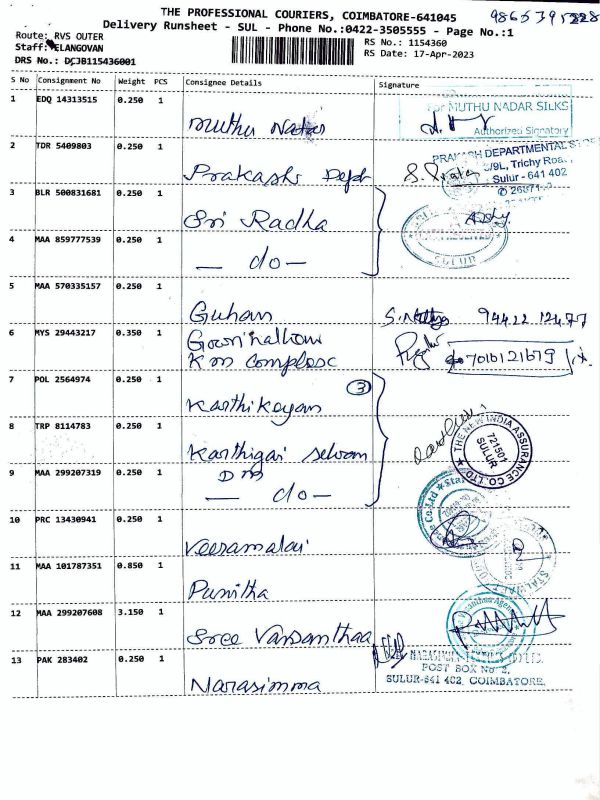 THE PROFESSIONAL COURIERS, COIMBATORE-641045
Delivery Runsheet - SUL - Phone No.:0422-3505555 - Page No.:1
Route: RVS OUTER
RS No.: 1154360
Staff: ELANGOVAN
RS Date: 17-Apr-2023
DRS No.: DCJB115436001
S No Consignment No Weight PCS Consignee Details Signature
1 EDQ 14313515 0.250 1 Muthu Nadar
For MUTHU NADAR SILKS
Authorized Signatory
2 TDR 5409803 0.250 1 Prakash Dept
PRAKASH DEPARTMENTAL
Trichy Road,
Sulur - 641 402
3 BLR 500831681 0.250 1 Sri Radha
4 MAA 859777539 0.250 1 — do —
SULUR
5 MAA 570335157 0.250 1 Guhan
6 MYS 29443217 0.350 1
Km Complex
7016121679
7 POL 2564974 0.250 1 Karthikeyan
3
8 TRP 8114783 0.250 1 Karthigai Selvam
THE NEW INDIA ASSURANCE CO. LTD.
721501
SULUR
9 MAA 299207319 0.250 1 — do —
10 PRC 13430941 0.250 1 Veeramalai
11 MAA 101787351 0.850 1 Punitha
12 MAA 299207608 3.150 1 Sree Vasanthaa
13 PAK 283402 0.250 1 Narasimma
POST BOX No 2,
SULUR-641 402. COIMBATORE.